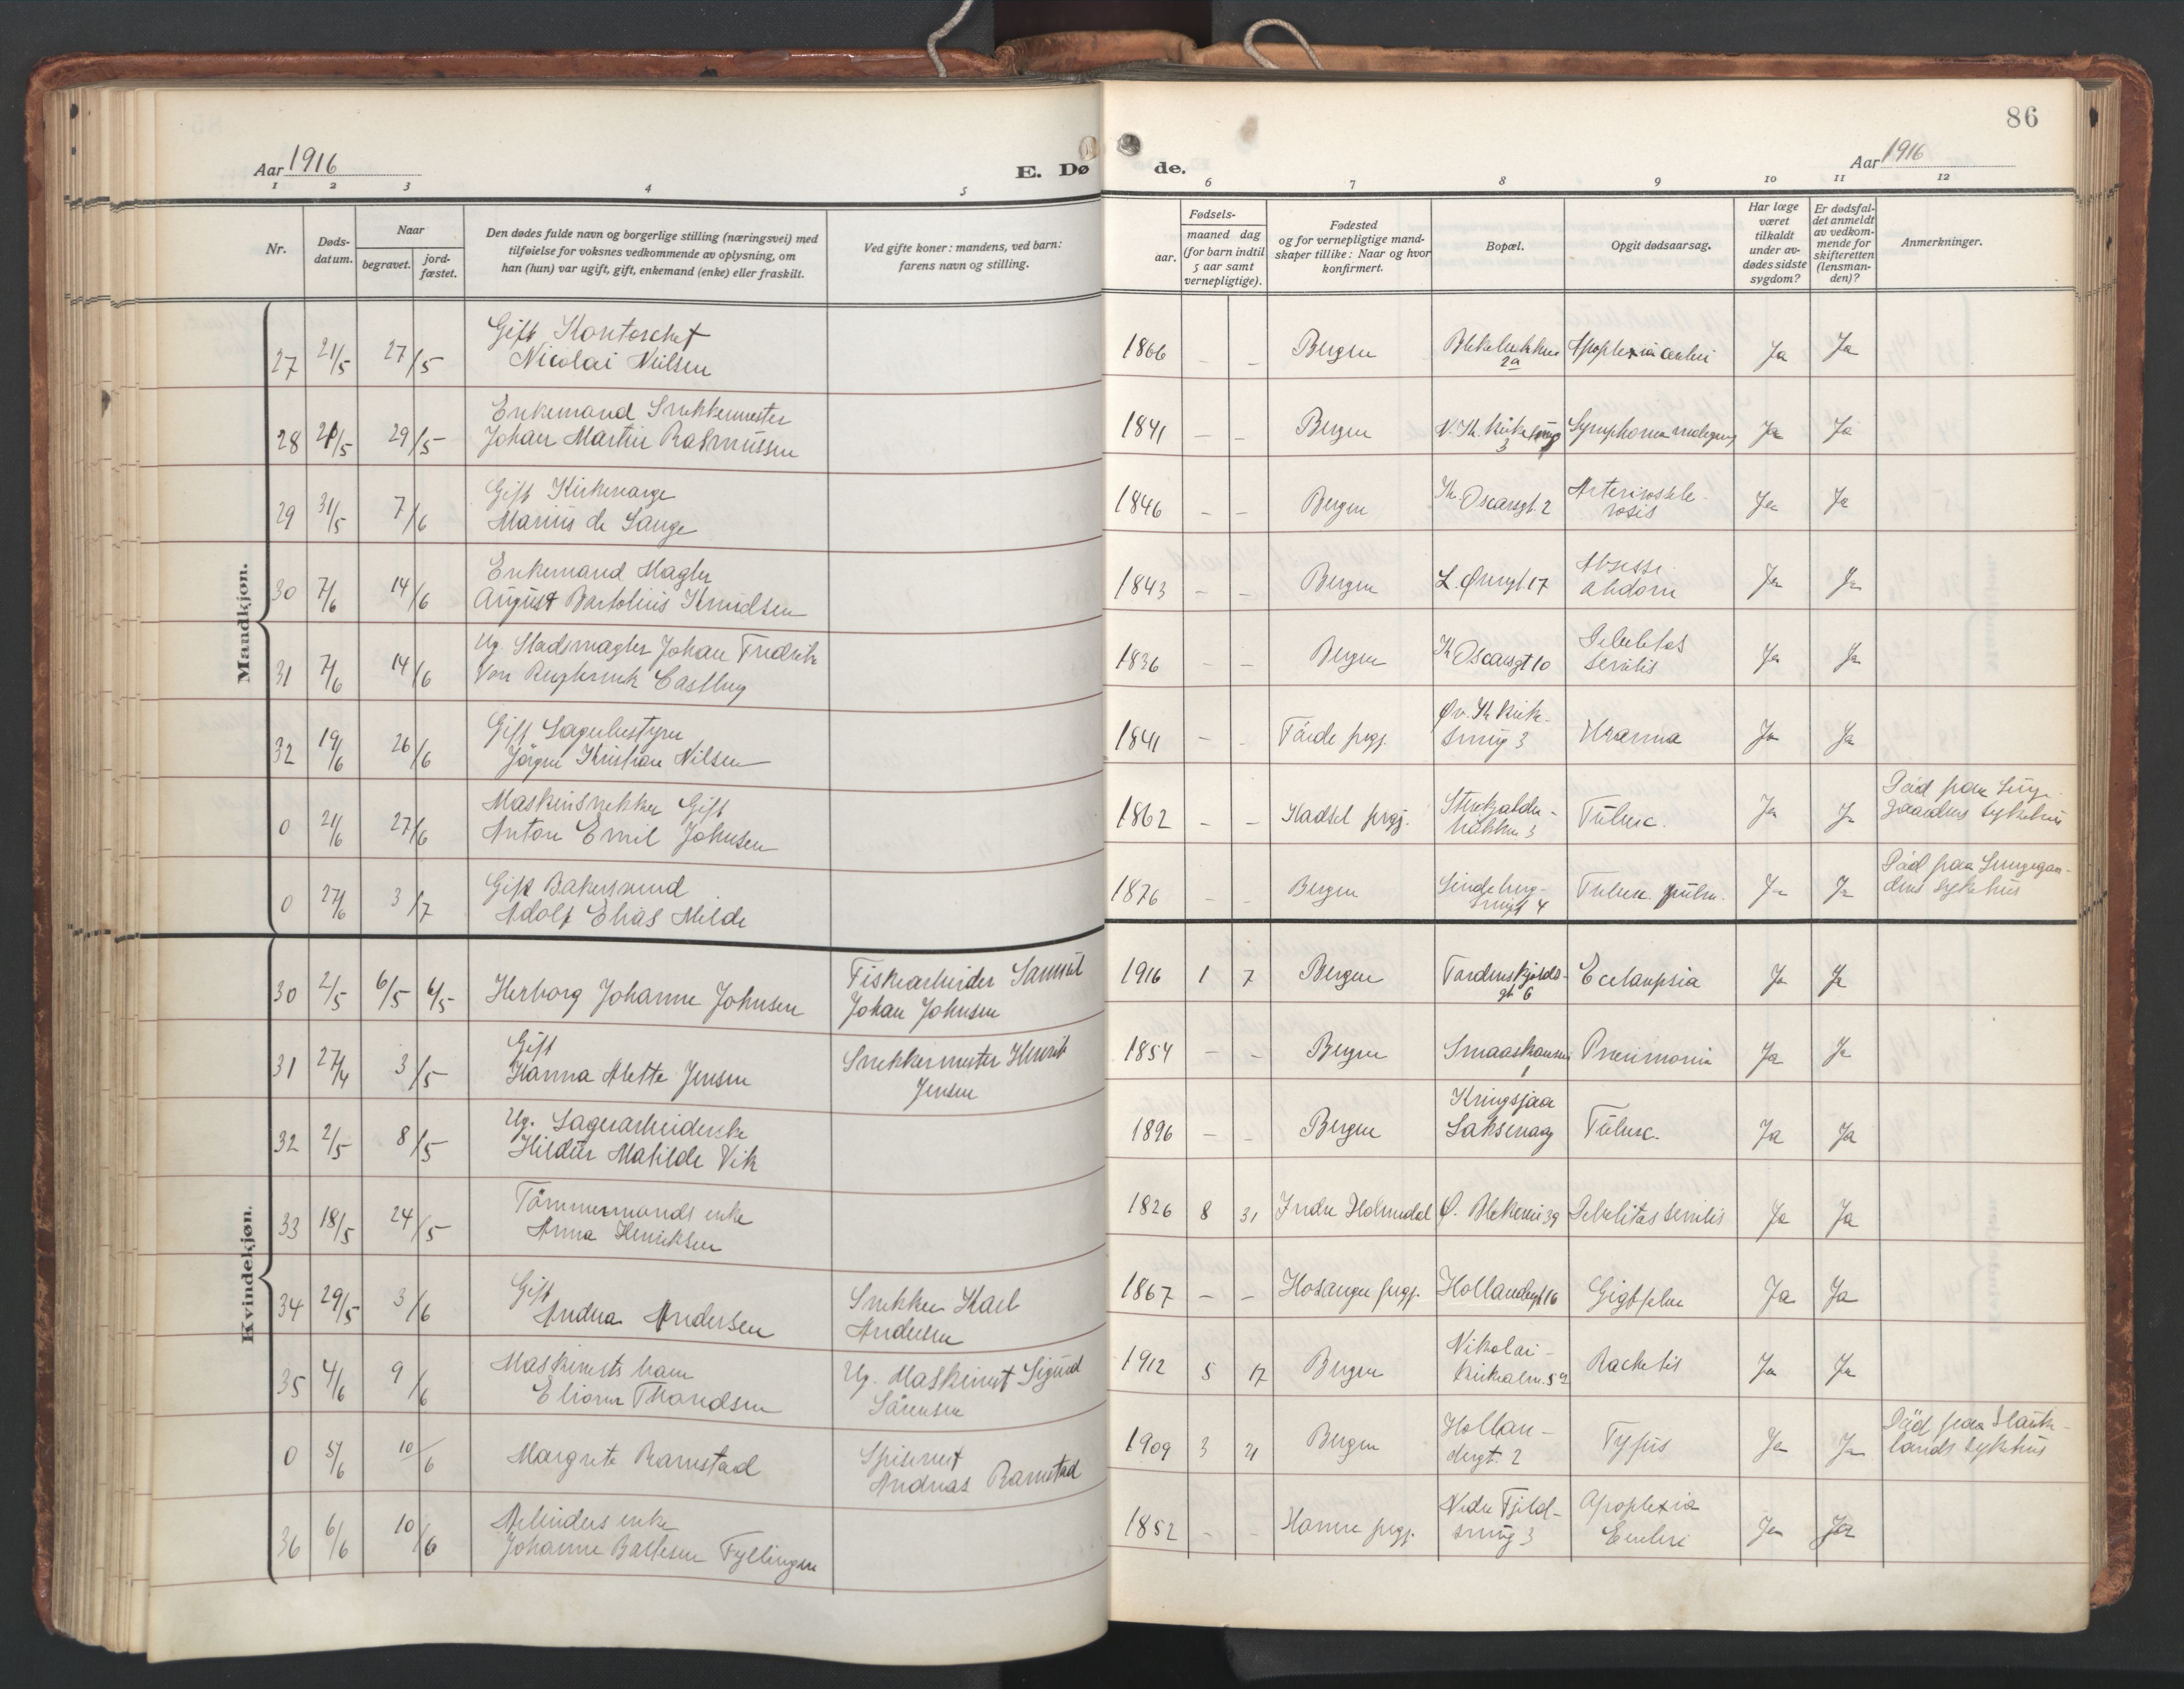 86
Aar 1916
E. Dø
de.
Aar 1916
1 2 3 4 5
6 7 8 9 10 11 12
Nr.
Døds-
datum.
Naar
begravet.
jord-
fæstet.
Den dødes fulde navn og borgerlige stilling (næringsvei) med
tilføielse for voksnes vedkommende av oplysning, om
han (hun) var ugift, gift, enkemand (enke) eller fraskilt.
Ved gifte koner: mandens, ved barn:
farens navn og stilling.
Fødsels-
aar.
maaned dag
(for barn indtil
5 aar samt
vernepligtige).
Fødested
og for vernepligtige mand-
skaper tillike: Naar og hvor
konfirmert.
Bopæl.
Opgit dødsaarsag.
Har læge
været
tilkaldt
under av-
dødes sidste
sygdom?
Er dødsfal-
det anmeldt
av vedkom-
mende for
skifteretten
(lensman-
den)?
Anmerkninger.
Mandkjøn.
27 21/5 27/5 Gift Kontorchef
Nicolai Nielsen
1866 – – Bergen 2a Apoplexia cerebri Ja Ja
28 21/5 29/5 Enkemand Snekkermester
Johan Martin Rasmussen
1841 – – Bergen 3 Ja Ja
29 31/5 7/6 Gift Kirkeverge
Marius de Lange
1846 – – Bergen Oscarsgt. 2 Arteriosscle-
rosis Ja Ja
30 7/6 14/6 Enkemand Mægler
August Bartolius Knudsen
1843 – – Bergen L. Øvregt 17 Absess.
abdom Ja Ja
31 7/6 14/6 Ug. Stadsmægler Johan Fredrik
von Castberg
1836 – – Bergen Oscarsgt 10 Debilitas
senilis Ja Ja
32 19/6 26/6 Gift Lagerbestyrer
Jörgen Kristian Nilsen
1841 – – Förde prgj. Øv. Kirke-
smug 3 Uræmia Ja Ja
0 21/6 27/6 Maskinsnekker Gift
Anton Emil Johnsen
1862 – – Hadsel prgj. Tuberc. Ja Ja Död paa Lunge-
gaardens sykehus
0 27/6 3/7 Gift Bakersvend
Adolf Elias Milde
1876 – – Bergen Lindeberg-
smug 4 Tuberc. pulm. Ja Ja Död paa Lungegaar-
dens sykehus
Kvindekjøn.
30 2/5 6/5 6/5 Herborg Johanne Johnsen
Fiskearbeider Samuel
Johan Johnsen
1916 1 7 Bergen Tordenskjolds-
gt 6 Eclampsia Ja Ja
31 27/4 3/5 Gift
Hanna Alette Jensen
Snekkermester Henrik
Jensen
1854 – – Bergen 1 Pneumonia Ja Ja
32 2/5 8/5 Ug. Lagerarbeiderske
Hildur Matilde Vik
1896 – – Bergen Kringsjaa
Laksevaag Tuberc. Ja Ja
33 18/5 24/5 Tömmermands enke
Anna Henriksen
1826 8 31 Indre Holmedal Ø. Blekevei 39 Debilitas senilis Ja Ja
34 29/5 3/6 Gift
Andrea Andersen
Snekker Karl
Andersen
1867 – – Hosanger prgj. Hollendergt 16 Gigtfeber Ja Ja
35 4/6 9/6 Maskinists barn
Thorvdsen
Ug. Maskinist Sigurd
Sörensen
1912 5 17 Bergen Nikolai-
kirkealm. 5a Rachitis Ja Ja
0 5/6 10/6 Margrete Ramstad
Andreas Ramstad
1909 3 21 Bergen Hollen-
dergt. 2 Tyfus Ja Ja Död paa Hauke-
lands sykehus
36 6/6 10/6 Arbeiders enke
Johanne Fyllingen
1852 – – Hamre prgj. Nedre Fjeld-
smug 3 Apoplexia
Cerebri Ja Ja